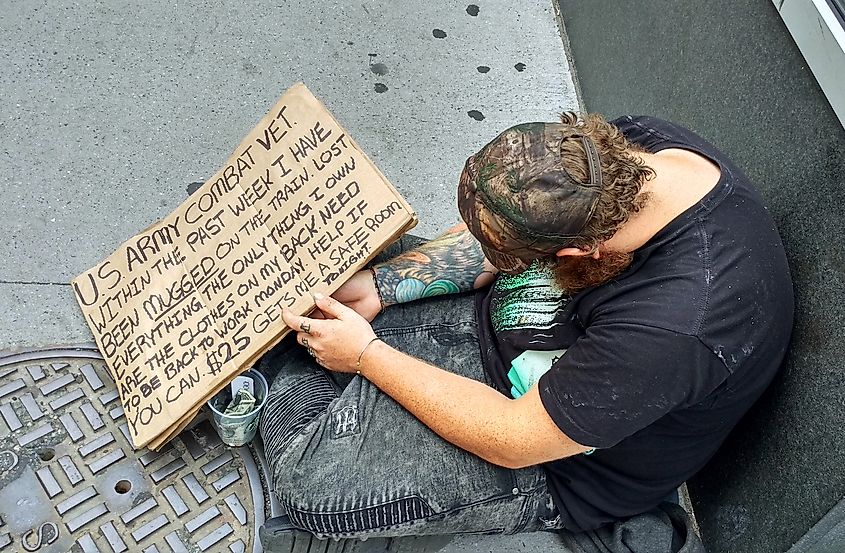 US ARMY COMBAT VET.
WITHIN THE PAST WEEK I HAVE
BEEN MUGGED ON THE TRAIN LOST
EVERYTHING, THE ONLY THING I OWN
ARE THE CLOTHES ON MY BACK NEED
TO BE BACK TO WORK MONDAY HELP IF
YOU CAN. $25 GETS ME A SAFE ROOM
TONIGHT.